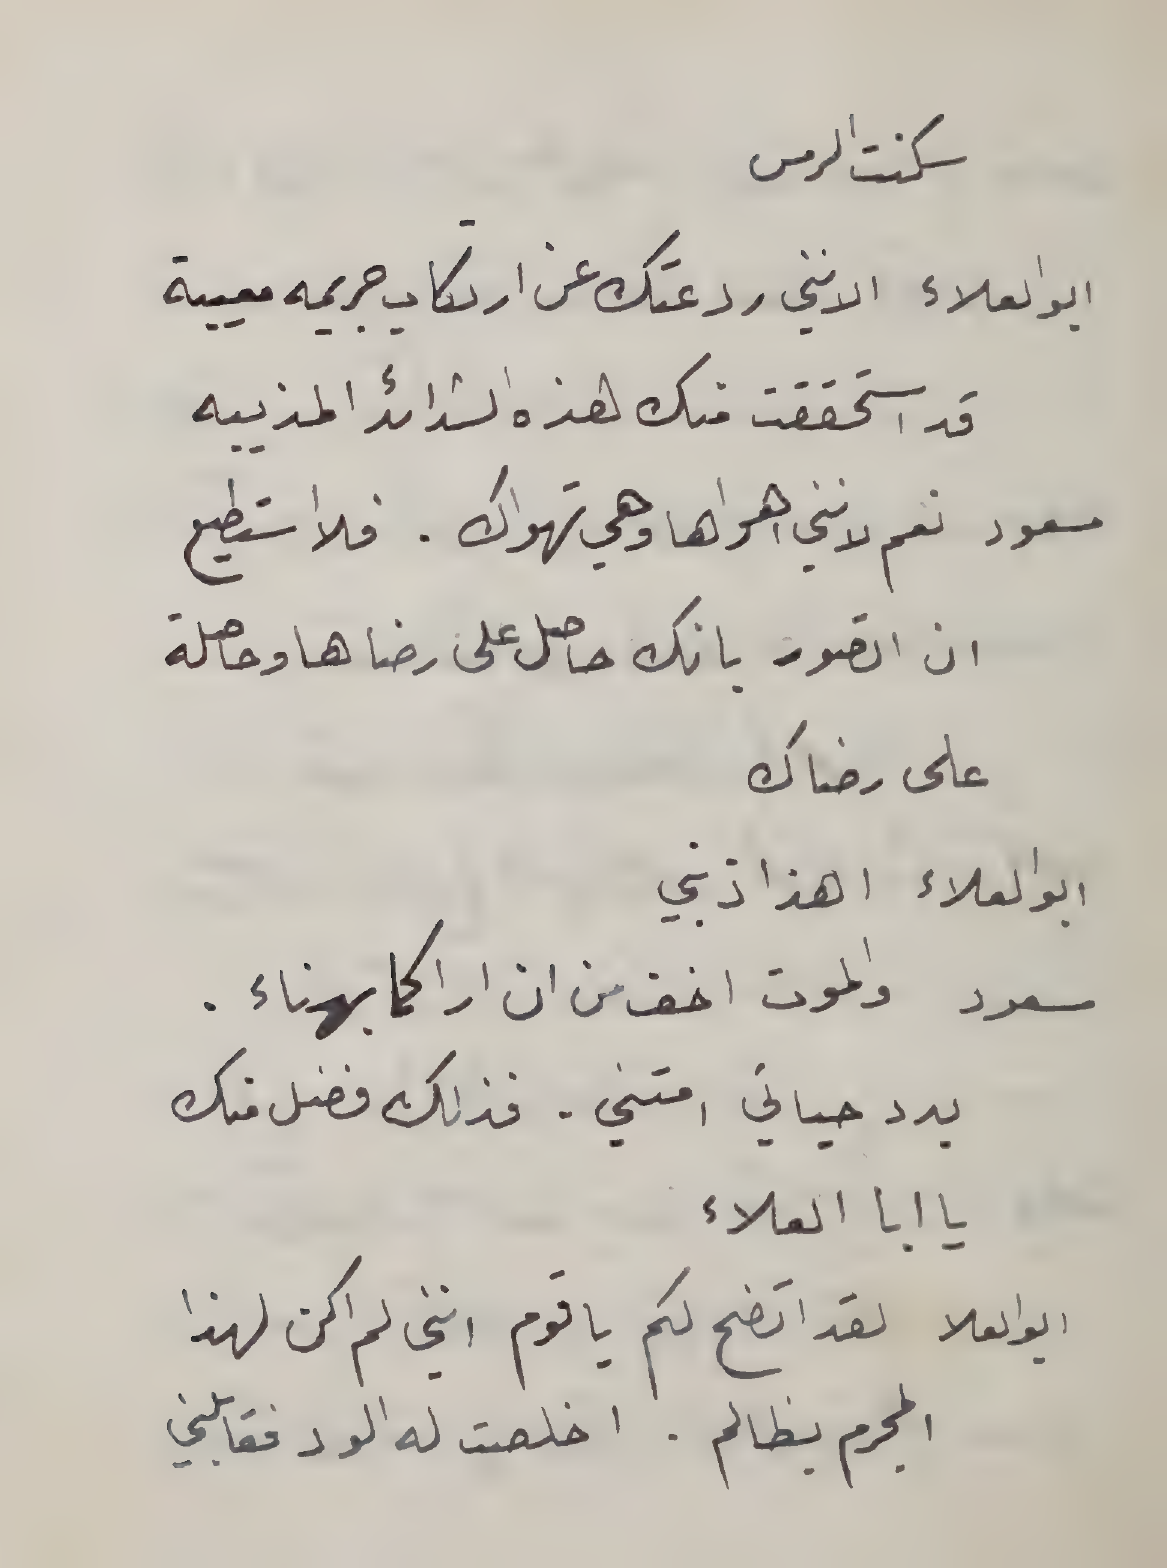 سكنت الرمس
ابو العلاء الانني ردعتك عن ارتكاب جريمه معيبة
قد استحققت منك هذه الشدائد المذيبه
مسعود نعم لانني اهواها وهي تهواك . فلا استطيع
ان اتصور بانك حاصل على رضاها وحاصلة
على رضاك
ابو العلاء اهذا ذنبي
مسعود والموت اخف من ان اراكما بهناء .
يدد حياتي امتني . فذلك فضل منك
يا ابا العلاء
ابو العلا لقد اتضح لكم يا قوم انني لم اكن لهذا
المجرم بظالم . اخلصت له الود فقابلني